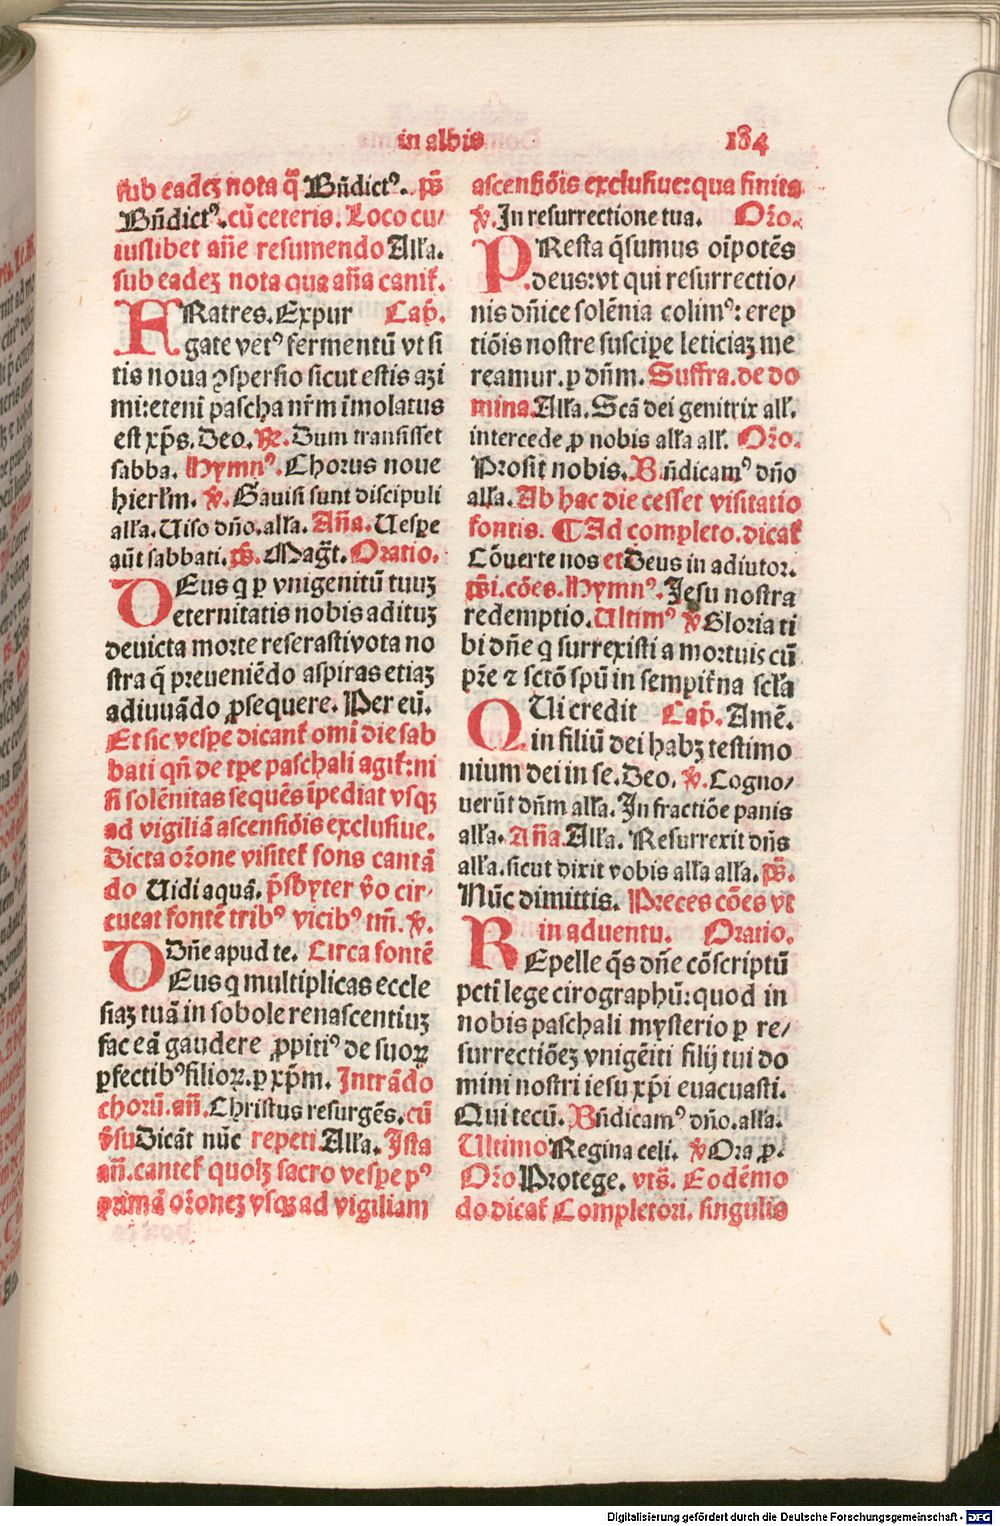 in albis 184
sub eadeʒ nota q̄ Bn̄dictꝰ. ps̄
Bn̄dictꝰ. cū ceteris. Loco cu/
iuslibet an̄e resumendo Alła.
sub eadeʒ nota qua an̄a canit̄.
FRatres. Expur Cap̄.
gate vetꝰ fermentū vt si
tis noua ꝯspersio sicut estis aʒi
mi: eteni pascha nr̄m īmolatus
est xp̄s. Deo. ℟. Dum transisset
sabba. Hymnꝰ. Chorus noue
hierłm. ℣. Gauisi sunt discipuli
alła. Uiso dn̄o. alła. An̄a. Uespe
aūt sabbati. ps̄. Maḡt. Oratio.
DEus q ꝑ vnigenitū tuuʒ
eternitatis nobis adituʒ
deuicta morte reserasti vota no
stra q̄ preueniēdo aspiras etiaʒ
adiuuādo ꝓsequere. Per eū.
Et sic vespe dicant̄ omī die sab
bati qn̄ de tp̄e paschali agit̄: ni
si solēnitas sequēs īpediat vsqʒ
ad vigiliā ascensiōis exclusiue.
Dicta or̄one visitet̄ fons cantā
do Uidi aquā. p̄sbyter v̄o cir/
cueat fontē tribꝰ vicibꝰ tm̄. ℣.
Dn̄e apud te. Circa fontē
DEus q multiplicas eccle
siaʒ tuā in sobole renascentiuʒ
fac eā gaudere ꝓpitiꝰ de suoꝝ
ꝑfectibꝰ filioꝝ. ꝑ xp̄m. Intrādo
chorū. an̄. Christus resurgēs. cū
v̄su Dicāt nūc repeti Alła. Ista
an̄. cantet̄ quolʒ sacro vespe pꝰ
primā or̄oneʒ vsqʒ ad vigiliam
ascensiōis exclusiue: qua finita
℣. In resurrectione tua. Or̄o.
PResta q̄sumus oīpotēs
deus: vt qui resurrectio/
nis dn̄ice solēnia colimꝰ: erep
tiōis nostre suscipe leticiaʒ me
reamur. ꝑ dn̄m. Suffra. de do
mina. Alła. Scā dei genitrix alł.
intercede ꝓ nobis alła alł. Or̄o.
Prosit nobis. Bn̄dicamꝰ dn̄o
alła. Ab hac die cesset visitatio
fontis. ¶ Ad completo. dicat̄
Cōuerte nos et Deus in adiutor.
ps̄i. cōes. Hymnꝰ. Jesu nostra
redemptio. Ultimꝰ ℣ Gloria ti
bi dn̄e q surrexisti a mortuis cū
pr̄e ⁊ sctō spū in sempit̄na scła
QUi credit Cap̄. Amē.
in filiū dei habʒ testimo
nium dei in se. Deo. ℣. Cogno/
uerūt dn̄m alła. In fractiōe panis
alła. An̄a. Alła. Resurrexit dn̄s
alła. sicut dixit vobis alła alła. ps̄.
Nūc dimittis. Preces cōes vt
in aduentu. Oratio.
REpelle q̄s dn̄e cōscriptū
pcti lege cirographū: quod in
nobis paschali mysterio ꝑ re/
surrectiōeʒ vnigēiti filij tui do
mini nostri iesu xp̄i euacuasti.
Qui tecū. Bn̄dicamꝰ dn̄o. alła.
Ultimo Regina celi. ℣ Ora ꝓ.
Or̄o Protege. vts̄. Eodēmo
do dicat̄ Completori. singulis
Digitalisierung gefördert durch die Deutsche Forschungsgemeinschaft - DFG